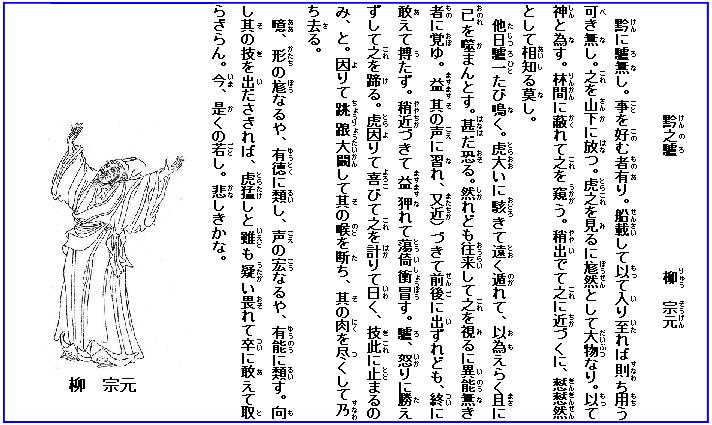 黔之驢　柳　宗元
黔に驢無し。事を好む者有り。船載して以て入り至れば則ち用う
可き無し。之を山下に放つ。虎之を見るに尨然として大物なり。以て
神と為す。林間に蔽れて之を窺う。稍出でて之に近づくに、憖憖然
として相知る莫し。
他日驢一たび鳴く。虎大いに駭きて遠く遁れて、以為えらく且に
己を噬まんとす。甚だ恐る。然れども往来して之を視るに異能無き
者に覚ゆ。益其の声に習れ、又近）づきて前後に出ずれども、終に
敢えて搏たず。稍近づきて益狎れて蕩倚衝冒す。驢、怒りに勝え
ずして之を蹄る。虎因りて喜びて之を計りて曰く、技此に止まるの
み、と。因りて跳踉大闞して其の喉を断ち、其の肉を尽くして乃
ち去る。
噫、形の尨なるや、有徳に類し、声の宏なるや、有能に類す。向
し其の技を出ださざれば、虎猛しと雖も疑い畏れて卒に敢えて取
らざらん。今、是くの若し。悲しきかな。
柳　宗元